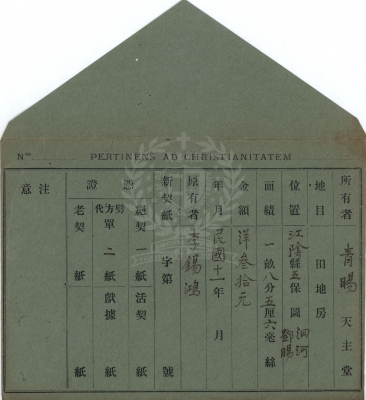 Nᵘˢ
PERTINENS AD CHRISTIANITATEM
所有者 青暘 天主堂
地目 田地房
位置 江陰縣五保圖 泗河 鄧陽
面績 一畝八分五厘六毫 絲
金額 洋叁拾元
年月 民國十一年 月
原有者 李錫鴻
新契紙 字第 號
憑證
絕契 一 紙 活契 紙
方單代劈 二 紙 献據 紙
老契 紙 紙
注意